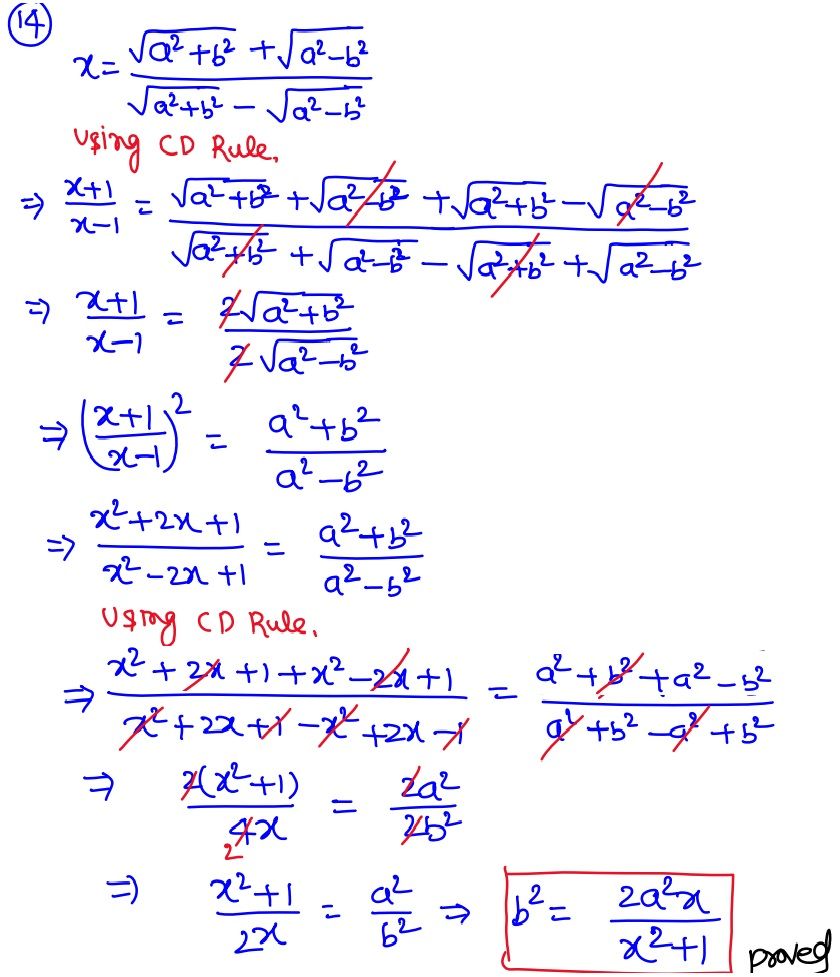 (14)
x = (√(a²+b²) + √(a²-b²)) / (√(a²+b²) - √(a²-b²))
Using CD Rule.
⇒ (x+1)/(x-1) = (√(a²+b²) + √(a²-b²) + √(a²+b²) - √(a²-b²)) / (√(a²+b²) + √(a²-b²) - √(a²+b²) + √(a²-b²))
⇒ (x+1)/(x-1) = 2√(a²+b²) / 2√(a²-b²)
⇒ ((x+1)/(x-1))² = (a²+b²)/(a²-b²)
⇒ (x²+2x+1)/(x²-2x+1) = (a²+b²)/(a²-b²)
Using CD Rule.
⇒ (x²+2x+1+x²-2x+1)/(x²+2x+1-x²+2x-1) = (a²+b²+a²-b²)/(a²+b²-a²+b²)
⇒ 2(x²+1)/4x = 2a²/2b²
2
⇒ (x²+1)/2x = a²/b² ⇒ b² = 2a²x/(x²+1) proved